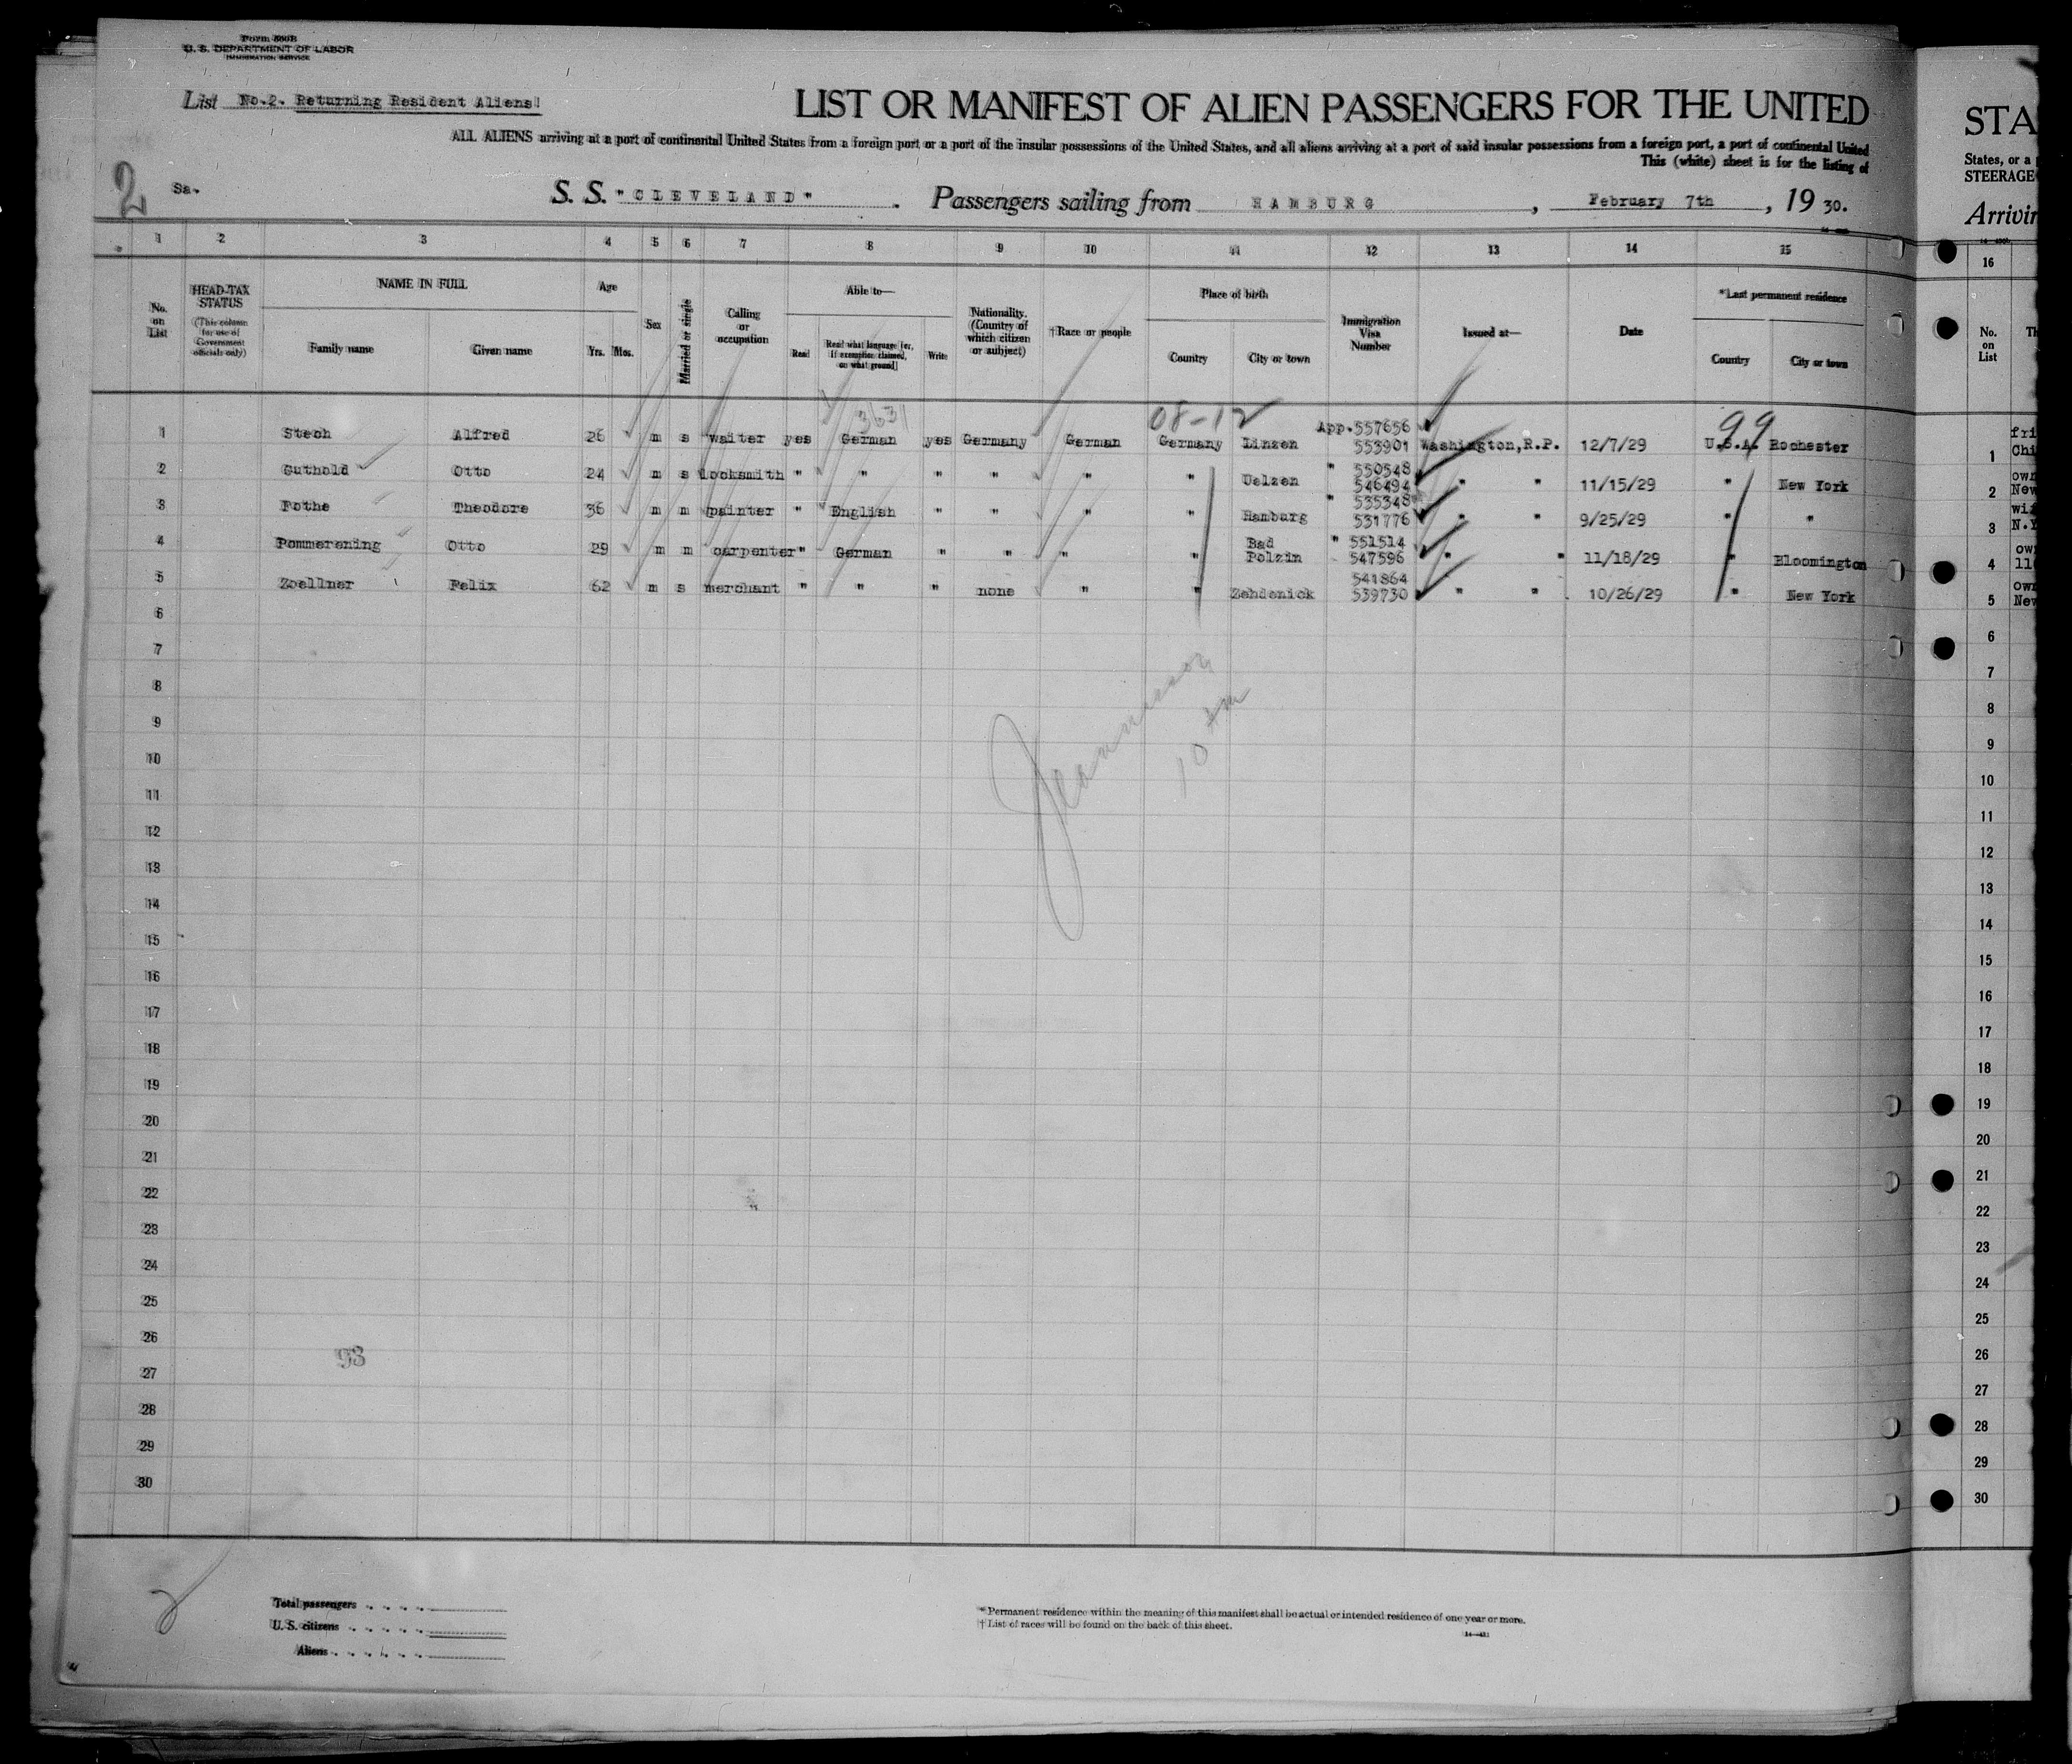 Form 500B
U. S. DEPARTMENT OF LABOR
IMMIGRATION SERVICE
List No.2. Returning Resident Aliens!
LIST OR MANIFEST OF ALIEN PASSENGERS FOR THE UNITED
ALL ALIENS arriving at a port of continental United States from a foreign port or a port of the insular possessions of the United States, and all aliens arriving at a port of said insular possessions from a foreign port, a port of continental United
This (white) sheet is for the listing of
2 Sa.
S. S. "CLEVELAND" . Passengers sailing from HAMBURG , February 7th , 19 30.
1 2 3 4 5 6 7 8 9 10 11 12 13 14 15
No. on List
HEAD-TAX STATUS (This column for use of Government officials only)
NAME IN FULL
Family name Given name
Age
Yrs. Mos.
Sex
Married or single
Calling or occupation
Able to—
Read Read what language [or, if exemption claimed, on what ground] Write
Nationality. (Country of which citizen or subject)
†Race or people
Place of birth
Country City or town
Immigration Visa Number
Issued at—
Date
*Last permanent residence
Country City or town
3631 08-12 99
1 Stech Alfred 26 m s waiter yes German yes Germany German Germany Linzen App.557656 553901 Washington,R.P. 12/7/29 U.S.A. Rochester
2 Guthold Otto 24 m s locksmith " " " " " " Uelzen " 550548 546494 " " 11/15/29 " New York
3 Pothe Theodore 36 m m painter " English " " " " Hamburg " 535348 531776 " " 9/25/29 " "
4 Pommerening Otto 29 m m carpenter " German " " " " Bad Polzin " 551514 547596 " " 11/18/29 " Bloomington
5 Zoellner Felix 62 m s merchant " " " none " " Zehdenick 541864 539730 " " 10/26/29 " New York
6
7
8
9
10
11
12
13
14
15
16
17
18
19
20
21
22
23
24
25
26
27
28
29
30
10 am
93
Total passengers
U. S. citizens
Aliens
* Permanent residence within the meaning of this manifest shall be actual or intended residence of one year or more.
† List of races will be found on the back of this sheet.
STA
States, or a
STEERAGE
Arrivin
16
No. on List
Th
1 fri Chi
2 own New
3 wi N.Y
4 own
5 own New
6
7
8
9
10
11
12
13
14
15
16
17
18
19
20
21
22
23
24
25
26
27
28
29
30